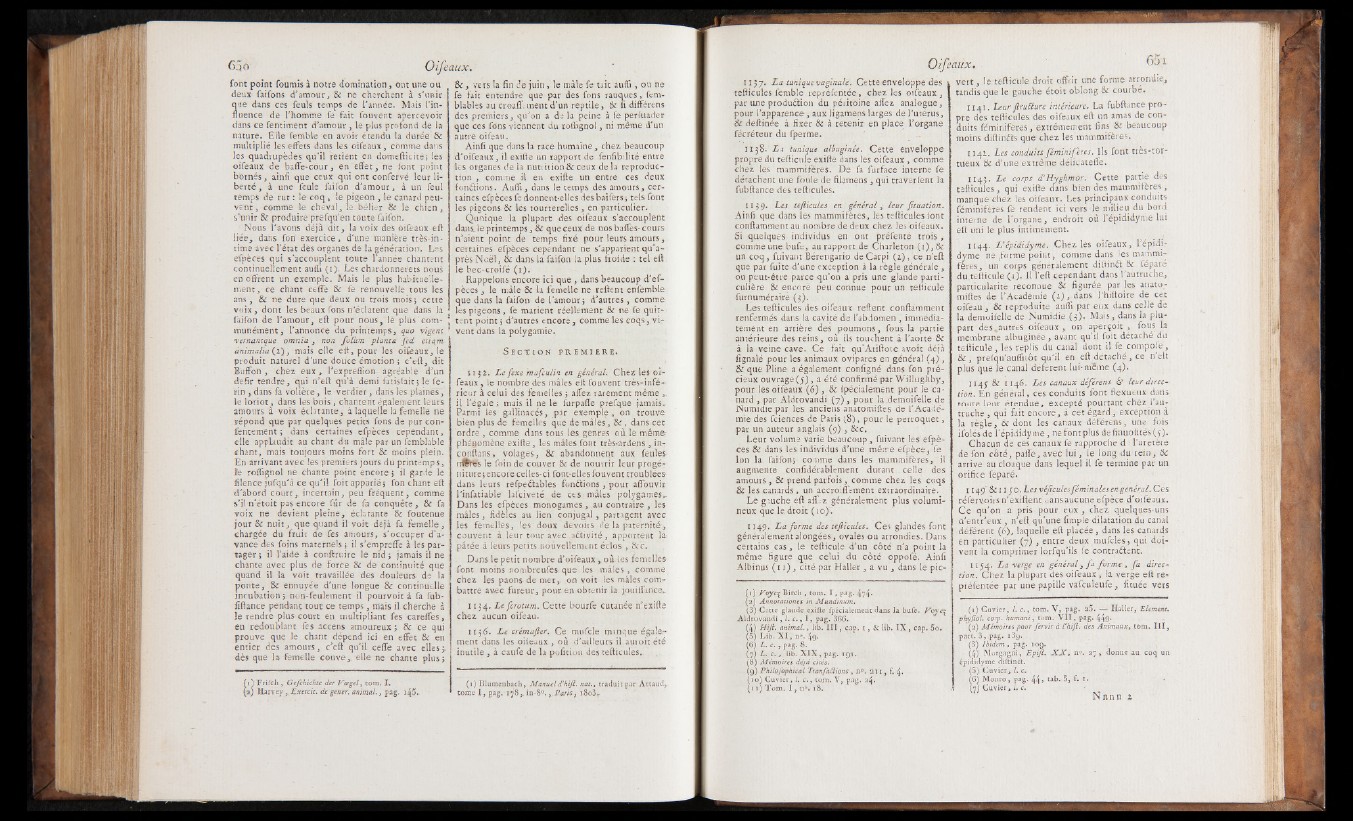 650
Oiseaux.
sont point soumis à notre domination, ont une ou
deux saisons d'amour, & ne cherchent à s'unir
que dans ces seuls temps de l'année. Mais l'in-
fluence de l'homme se fait souvent apercevoir
dans ce sentiment d'amour, le plus profond de la
nature. Elle semble en avoir étendu la durée &
multiplié les effets dans les oiseaux, comme dans
les quadrupèdes qu'il retient en domesticité: les
oiseaux de basse-cour, en effet, ne sont point
bornés, ainsi que ceux qui ont conservé leur li-
berté, à une seule saison d'amour, à un seul
temps de rut: le coq, le pigeon, le canard peu-
vent, comme le cheval, le bélier & le chien,
s'unir & produire presqu'en toute saison.
Nous l'avons déjà dit, la voix des oiseaux est
liée, dans son exercice, d'une manière très-in-
time avec l'état des organes de la génération. Les
espèces qui s'accouplent toute l'année chantent
continuellement aussi (1). Les chardonnerets nous
en offrent un exemple. Mais le plus habituelle-
ment, ce chant cesse & se renouvelle tous les
ans, & ne dure que deux ou trois mois; cette
voix, dont les beaux sons n'éclatent que dans la
saison de l'amour, est pour nous, le plus com-
munément, l'annonce du printemps, quo vigent
vernantque omnia, non solùm planta sed etiam
animalia (2), mais elle est, pour les oiseaux, le
produit naturel d'une douce émotion; c'est, dit
Buffon, chez eux, l'expression agréable d'un
desir tendre, qui n'est qu'à demi satisfait; le se-
rin, dans sa volière, le verdier, dans les plaines,
le loriot, dans les bois, chantent également leurs
amours à voix éclatante, à laquelle la femelle ne
répond que par quelques petits sons de pur con-
sentement; dans certaines espèces cependant,
elle applaudit au chant du mâle par un semblable
chant, mais toujours moins fort & moins plein.
En arrivant avec les premiers jours du printemps,
le rossignol ne chante point encore; il garde le
silence jusqu'à ce qu'il soit apparié; son chant est
d'abord court, incertain, peu fréquent, comme
s'il n'étoit pas encore sûr de sa conquête, & sa
voix ne devient pleine, éclatante & soutenue
jour & nuit, que quand il voit déjà sa femelle,
chargée du fruit de ses amours, s'occuper d'a-
vance des soins maternels; il s'empresse à les par-
tager; il l'aide à construire le nid; jamais il ne
chante avec plus de force & de continuité que
quand il la voit travaillée des douleurs de la
ponte, & ennuyée d'une longue & continuelle
incubation; non-seulement il pourvoit à sa sub-
sistance pendant tout ce temps, mais il cherche à
le rendre plus court en multipliant ses caresses,
en redoublant ses accens amoureux; & ce qui
prouve que le chant dépend ici en effet & en
entier des amours, c'est qu'il cesse avec elles;
dès que la femelle couve, elle ne chante plus;
(1) Frisch, Geschichte der Vœgel, tom. I.
(2) Harvey, Exercit. de gener. animal., pag. 145.
&, vers la fin de juin, le mâle se tait aussi, ou ne
se fait entendre que par des sons rauques, sem-
blables au croassement d'un reptile, & si différens
des premiers, qu'on a de la peine à se persuader
que ces sons viennent du rossignol, ni même d'un
autre oiseau.
Ainsi que dans la race humaine, chez beaucoup
d'oiseaux, il existe un rapport de sensibilité entre
les organes de la nutrition & ceux de la reproduc-
tion, comme il en existe un entre ces deux
fonctions. Aussi, dans le temps des amours, cer-
taines espèces se donnent-elles des baisers; tels sont
les pigeons & les tourterelles, en particulier.
Quoique la plupart des oiseaux s'accouplent
dans le printemps, & que ceux de nos basses-cours
n'aient point de temps fixé pour leurs amours,
certaines espèces cependant ne s'apparient qu'a-
près Noël, & dans la saison la plus froide: tel est
le bec-croisé (1).
Rappelons encore ici que, dans beaucoup d'es-
pèces, le mâle & la femelle ne restent ensemble
que dans la saison de l'amour; d'autres, comme
les pigeons, se marient réellement & ne se quit-
tent point; d'autres encore, comme les coqs, vi-
vent dans la polygamie.
SECTION PREMIERE.
1132. Le sexe masculin en général. Chez les oi-
seaux, le nombre des mâles est souvent très-infé-
rieur à celui des femelles; assez rarement même
il l'égale; mais il ne le surpasse presque jamais.
Parmi les gallinacés, par exemple, on trouve
bien plus de femelles que de mâles, &, dans cet
ordre, comme dans tous les genres où le même
phénomène existe, les mâles sont très-ardens, in-
constans, volages, & abandonnent aux seules
mères le soin de couver & de nourrir leur progé-
niture; encore celles-ci sont-elles souvent troublées
dans leurs respectables fonctions, pour assouvir
l'insatiable lasciveté de ces mâles polygames.
Dans les espèces monogames, au contraire, les
mâles, fidèles au lien conjugal, partagent avec
les femelles, les doux devoirs de la paternité,
couvent à leur tour avec activité, apportent la
pâtée à leurs petits nouvellement éclos, &c.
Dans le petit nombre d'oiseaux, où les femelles
sont moins nombreuses que les mâles, comme
chez les paons de mer, on voit les mâles com-
battre avec fureur, pour en obtenir la jouissance.
1134. Le scrotum. Cette bourse cutanée n'existe
chez aucun oiseau.
1136. Le crémaster. Ce muscle manque égale-
ment dans les oiseaux, où d'ailleurs il auroit été
inutile, à cause de la position des testicules.
(1) Blumenbach, Manuel d'hist. nat., traduit par Artaud,
tome I, pag. 178, in-8°., Paris, 1803.
Oiseaux.
651
1137. La tunique vaginale. Cette enveloppe des
testicules semble représentée, chez les oiseaux,
par une production du péritoine assez analogue,
pour l'apparence, aux ligamens larges de l'utérus,
& destinée à fixer & à retenir en place l'organe
sécréteur du sperme.
1138. La tunique albuginée. Cette enveloppe
propre du testicule existe dans les oiseaux, comme
chez les mammifères. De sa surface interne se
détachent une foule de filamens, qui traversent la
substance des testicules.
1139. Les testicules en général, leur situation.
Ainsi que dans les mammifères, les testicules sont
constamment au nombre de deux chez les oiseaux.
Si quelques individus en ont présenté trois,
comme une buse, au rapport de Charleton (1), &
un coq, suivant Berengario de Carpi (2), ce n'est
que par suite d'une exception à la règle générale,
ou peut-être parce qu'on a pris une glande parti-
culière & encore peu connue pour un testicule
surnuméraire (3).
Les testicules des oiseaux restent constamment
renfermés dans la cavité de l'abdomen, immédia-
tement en arrière des poumons, sous la partie
antérieure des reins, où ils touchent à l'aorte &
à la veine cave. Ce fait qu'Aristote avoit déjà
signalé pour les animaux ovipares en général (4),
& que Pline a également consigné dans son pré-
cieux ouvrage (5), a été confirmé par Willughby,
pour les oiseaux (6), & spécialement pour le ca-
nard, par Aldrovandi (7), pour la demoiselle de
Numidie par les anciens anatomistes de l'Acadé-
mie des sciences de Paris (8), pour le perroquet,
par un auteur anglais (9), &c.
Leur volume varie beaucoup, suivant les espè-
ces & dans les individus d'une même espèce, se-
lon la saison; comme dans les mammifères, il
augmente considérablement durant celle des
amours, & prend parfois, comme chez les coqs
& les canards, un accroissement extraordinaire.
Le gauche est assez généralement plus volumi-
neux que le droit (10).
1149. La forme des testicules. Ces glandes sont
généralement alongées, ovales ou arrondies. Dans
certains cas, le testicule d'un côté n'a point la
même figure que celui du côté opposé. Ainsi
Albinus (11), cité par Haller, a vu, dans le pic-
(1) Voyez Birch, tom. I, pag. 474.
(2) Annotationes in Mundinum.
(3) Cette glande existe spécialement dans la buse. Voyez
Aldrovandi, l. c., I, pag. 366.
(4) Hist. animal., lib. III, cap. 1, & lib. IX, cap. 50.
(5) Lib. XI, n°. 49.
(6) L. c., pag. 8.
(7) L. c., lib. XIX, pag. 191.
(8) Mémoires déjà cités.
(9) Philosophical Transactions, n°. 211, f. 4.
(10) Cuvier, l. c., tom. V, pag. 24.
(11) Tom. I, n°. 18.
vert, le testicule droit offrir une forme arrondie,
tandis que le gauche étoit oblong & courbé.
1141. Leur structure intérieure. La substance pro-
pre des testicules des oiseaux est un amas de con-
duits séminifères, extrêmement fins & beaucoup
moins distincts que chez les mammifères.
1142. Les conduits séminifères. Ils sont très-tor-
tueux & d'une extrême délicatesse.
1143. Le corps d'Hyghmor. Cette partie des
testicules, qui existe dans bien des mammifères,
manque chez les oiseaux. Les principaux conduits
séminifères se rendent ici vers le milieu du bord
interne de l'organe, endroit où l'épididyme lui
est uni le plus intimement.
1144. L'épididyme. Chez les oiseaux, l'épidi-
dyme ne forme point, comme dans les mammi-
fères, un corps généralement distinct & séparé
du testicule (1). Il l'est cependant dans l'autruche,
particularité reconnue & figurée par les anato-
mistes de l'Académie (2), dans l'histoire de cet
oiseau, & reproduite aussi par eux dans celle de
la demoiselle de Numidie (3). Mais, dans la plu-
part des autres oiseaux, on aperçoit, sous la
membrane albuginée, avant qu'il soit détaché du
testicule, les replis du canal dont il se compose,
&, presqu'aussitôt qu'il en est détaché, ce n'est
plus que le canal déférent lui-même (4).
1145 & 1146. Les canaux déférens & leur direc-
tion. En général, ces conduits sont flexueux dans
toute leur étendue, excepté pourtant chez l'au-
truche, qui fait encore, à cet égard, exception à
la règle, & dont les canaux déférens, une fois
isolés de l'épididyme, ne sont plus de sinuosités (5).
Chacun de ces canaux se rapproche de l'uretère
de son côté, passe, avec lui, le long du rein, &
arrive au cloaque dans lequel il se termine par un
orifice séparé.
1149 & 1150. Les vésicules séminales en général. Ces
réservoirs n'existent dans aucune espèce d'oiseaux.
Ce qu'on a pris pour eux, chez quelques-uns
d'entr'eux, n'est qu'une simple dilatation du canal
déférent (6), laquelle est placée, dans les canards
en particulier (7), entre deux muscles, qui doi-
vent la comprimer lorsqu'ils se contractent.
1154. La verge en général, sa forme, sa direc-
tion. Chez la plupart des oiseaux, la verge est re-
présentée par une papille vasculeuse, située vers
(1) Cuvier, l. c., tom. V, pag. 25. — Haller, Element.
physiol. corp. humani, tom. VII, pag. 449.
(2) Mémoires pour servir à l'hist. des Animaux, tom. III,
part. 3, pag. 139.
(3) Ibidem, pag. 109.
(4) Morgagni, Epist. XX, n°. 27, donne au coq un
épididyme distinct.
(5) Cuvier, l. c.
(6) Monro, pag. 44, tab. 5, f. 1.
(7) Cuvier, l. c.
Nnnn 2